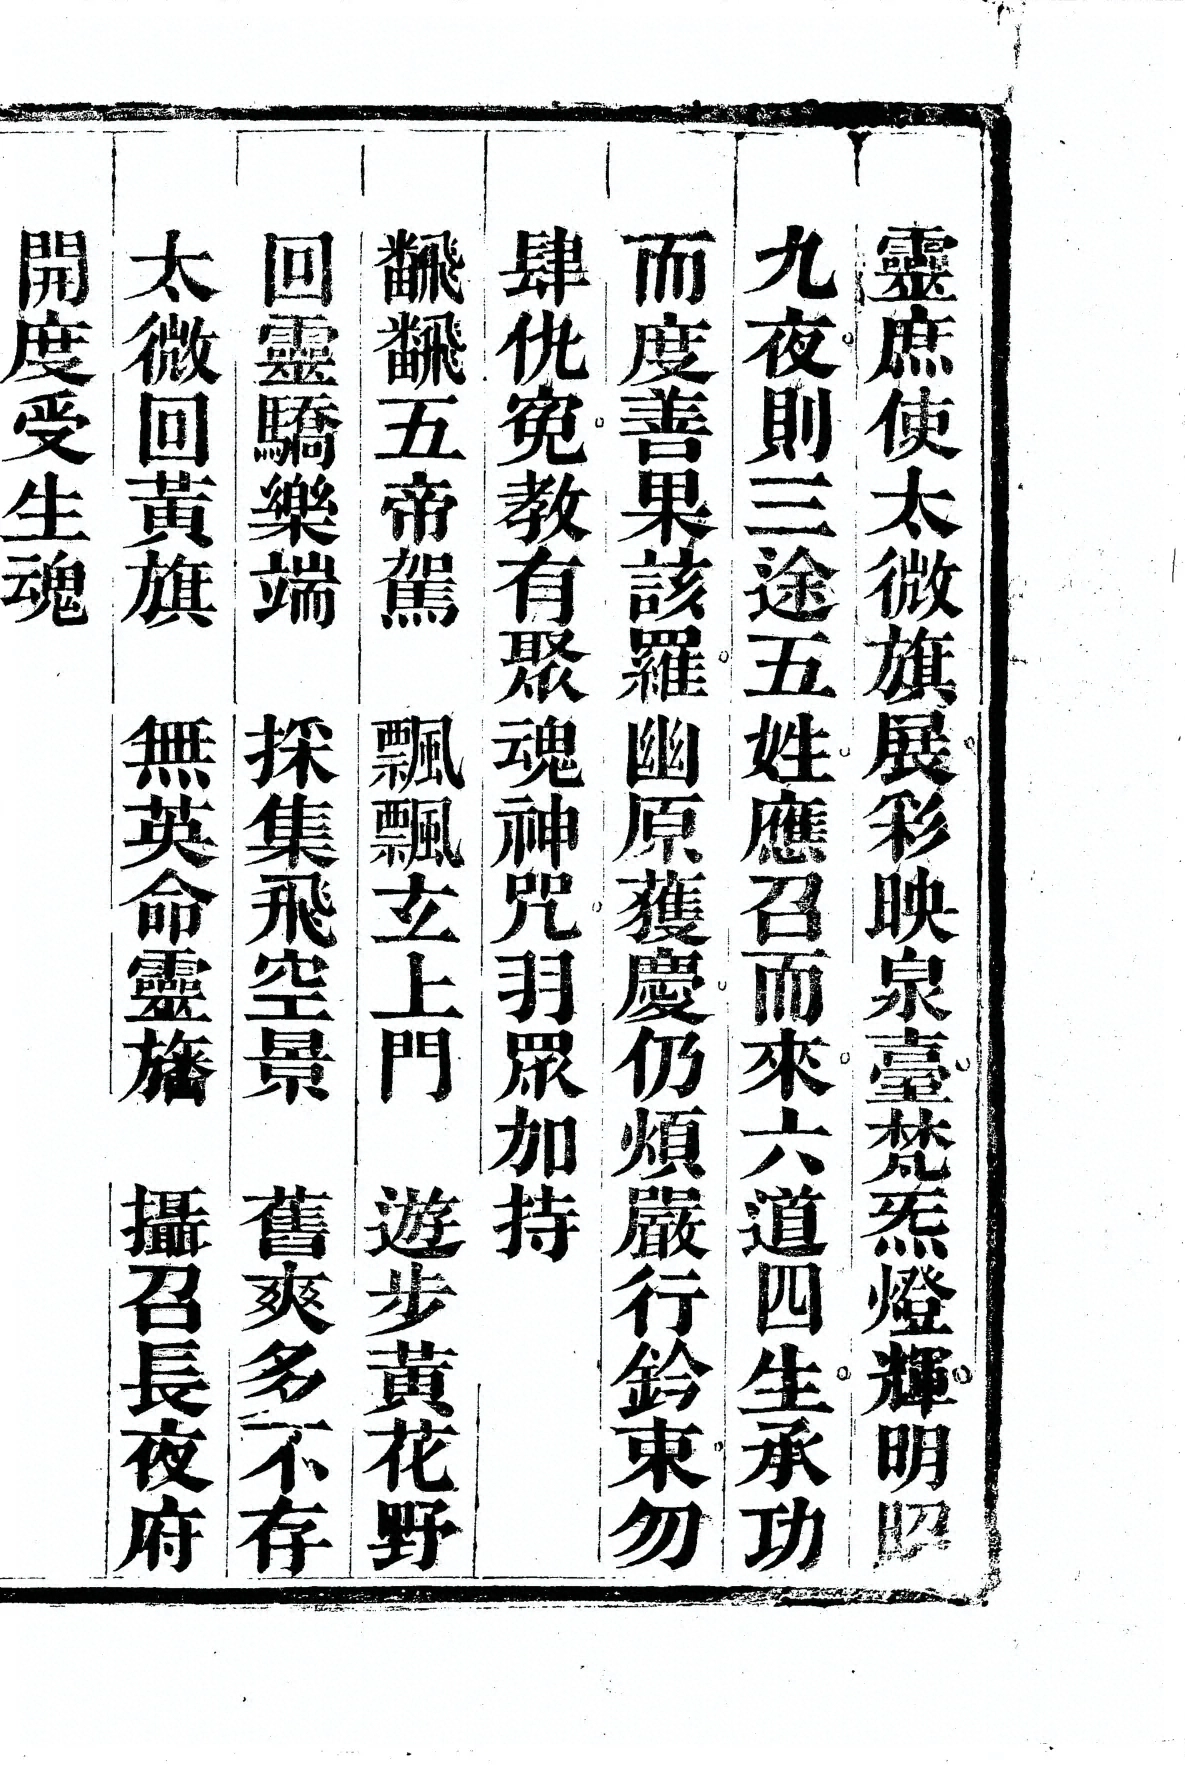 靈庶使太微旗展彩映泉臺梵炁燈輝明昭
九夜則三途五姓應召而來六道四生承功
而度善果該羅幽原獲慶仍煩嚴行鈐束勿
肆仇寃教有聚魂神咒羽眾加持
翻翻五帝駕　飄飄玄上門　遊步黃花野
回靈驕樂端　採集飛空景　舊爽多不存
太微回黃旗　無英命靈旛　攝召長夜府
開度受生魂